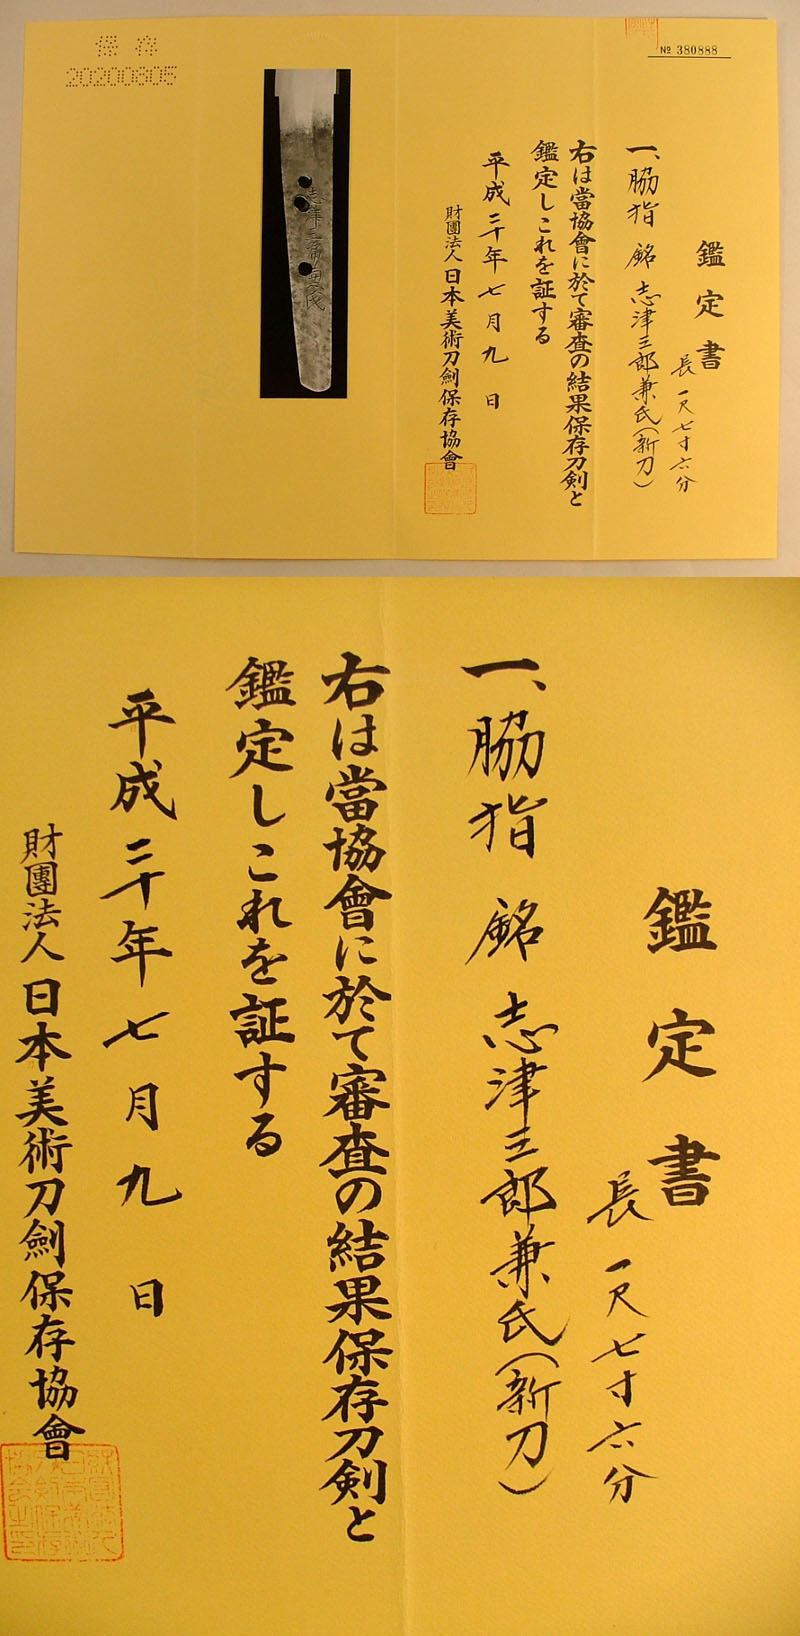 № 380888
鑑定書
長一尺七寸六分
一、脇指 銘 志津三郎兼氏(新刀)
右は當協會に於て審査の結果保存刀剣と
鑑定しこれを証する
平成二十年七月九日
財團法人日本美術刀劍保存協會
志津三郎兼氏
保存
20200805
鑑定書
長一尺七寸六分
一、脇指 銘 志津三郎兼氏(新刀)
右は當協會に於て審査の結果保存刀剣と
鑑定しこれを証する
平成二十年七月九日
財團法人日本美術刀劍保存協會